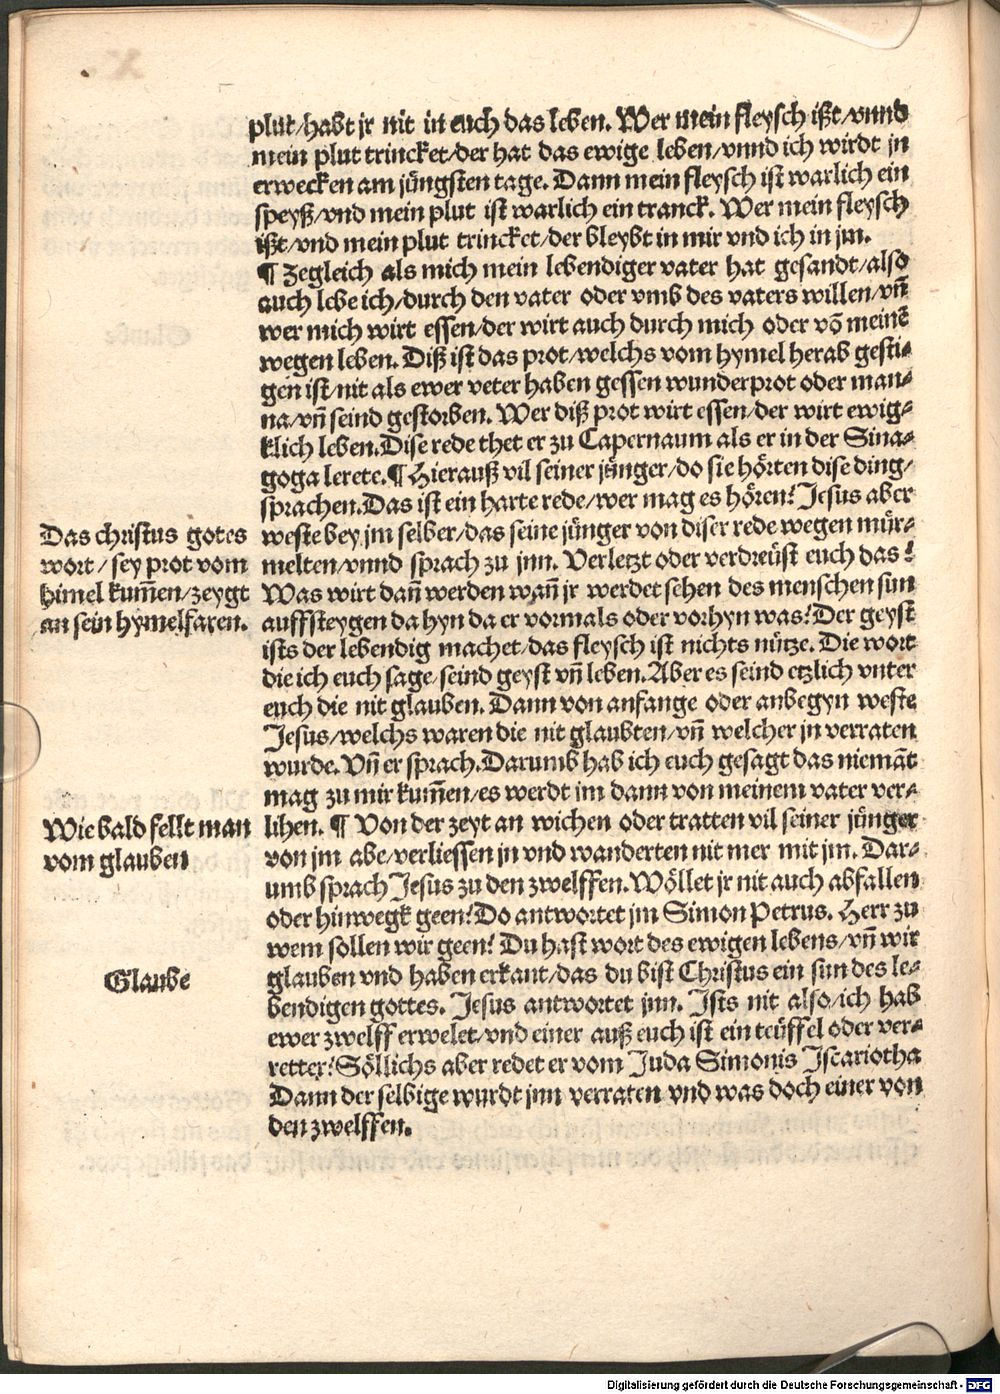 plut/habt jr nit in euch das leben. Wer mein fleysch ißt/vnnd
mein plut trincket/der hat das ewige leben/vnnd ich wirdt jn
erwecken am jüngsten tage. Dann mein fleysch ist warlich ein
speyß/vnd mein plut ist warlich ein tranck. Wer mein fleysch
ißt/vnd mein plut trincket/der bleybt in mir vnd ich in jm.
¶ Zegleich als mich mein lebendiger vater hat gesandt/also
auch lebe ich/durch den vater oder vmb des vaters willen/vñ
wer mich wirt essen/der wirt auch durch mich oder võ meinẽ
wegen leben. Diß ist das prot/welchs vom hymel herab gesti-
gen ist/nit als ewer veter haben gessen wunderprot oder man-
na/vñ seind gestorben. Wer diß prot wirt essen/der wirt ewig-
klich leben. Dise rede thet er zu Capernaum als er in der Sina-
goga lerete. ¶ Hierauß vil seiner jünger/do sie hörten dise ding/
sprachen. Das ist ein harte rede/wer mag es hören? Jesus aber
Das christus gotes
wort/sey prot vom
himel kum̃en/zeygt
an sein hymelfaren.
weste bey jm selber/das seine jünger von diser rede wegen mür-
melten/vnnd sprach zu jnn. Verletzt oder verdreüst euch das?
Was wirt dañ werden wañ jr werdet sehen des menschen sun
auffsteygen da hyn da er vormals oder vorhyn was? Der geyst
ists der lebendig machet/das fleysch ist nichts nütze. Die wort
die ich euch sage/seind geyst vñ leben. Aber es seind etzlich vnter
euch die nit glauben. Dann von anfange oder anbegyn weste
Jesus/welchs waren die nit glaubten/vñ welcher jn verraten
wurde. Vñ er sprach. Darumb hab ich euch gesagt das niemãt
mag zu mir kum̃en/es werdt jm dann von meinem vater ver-
Wie bald fellt man
vom glauben
lihen. ¶ Von der zeyt an wichen oder tratten vil seiner jünger
von jm abe/verliessen jn vnd wanderten nit mer mit jm. Dar-
umb sprach Jesus zu den zwelffen. Wöllet jr nit auch abfallen
oder hinwegk geen? Do antwortet jm Simon Petrus. Herr zu
wem sollen wir geen? Du hast wort des ewigen lebens/vñ wir
Glaube
glauben vnd haben erkant/das du bist Christus ein sun des le-
bendigen gottes. Jesus antwortet jnn. Ists nit also/ich hab
ewer zwelff erwelet/vnd einer auß euch ist ein teüffel oder ver-
retter? Söllichs aber redet er vom Juda Simonis Iscariotha
Dann der selbige wurdt jnn verraten vnd was doch einer von
den zwelffen.
Digitalisierung gefördert durch die Deutsche Forschungsgemeinschaft - DFG